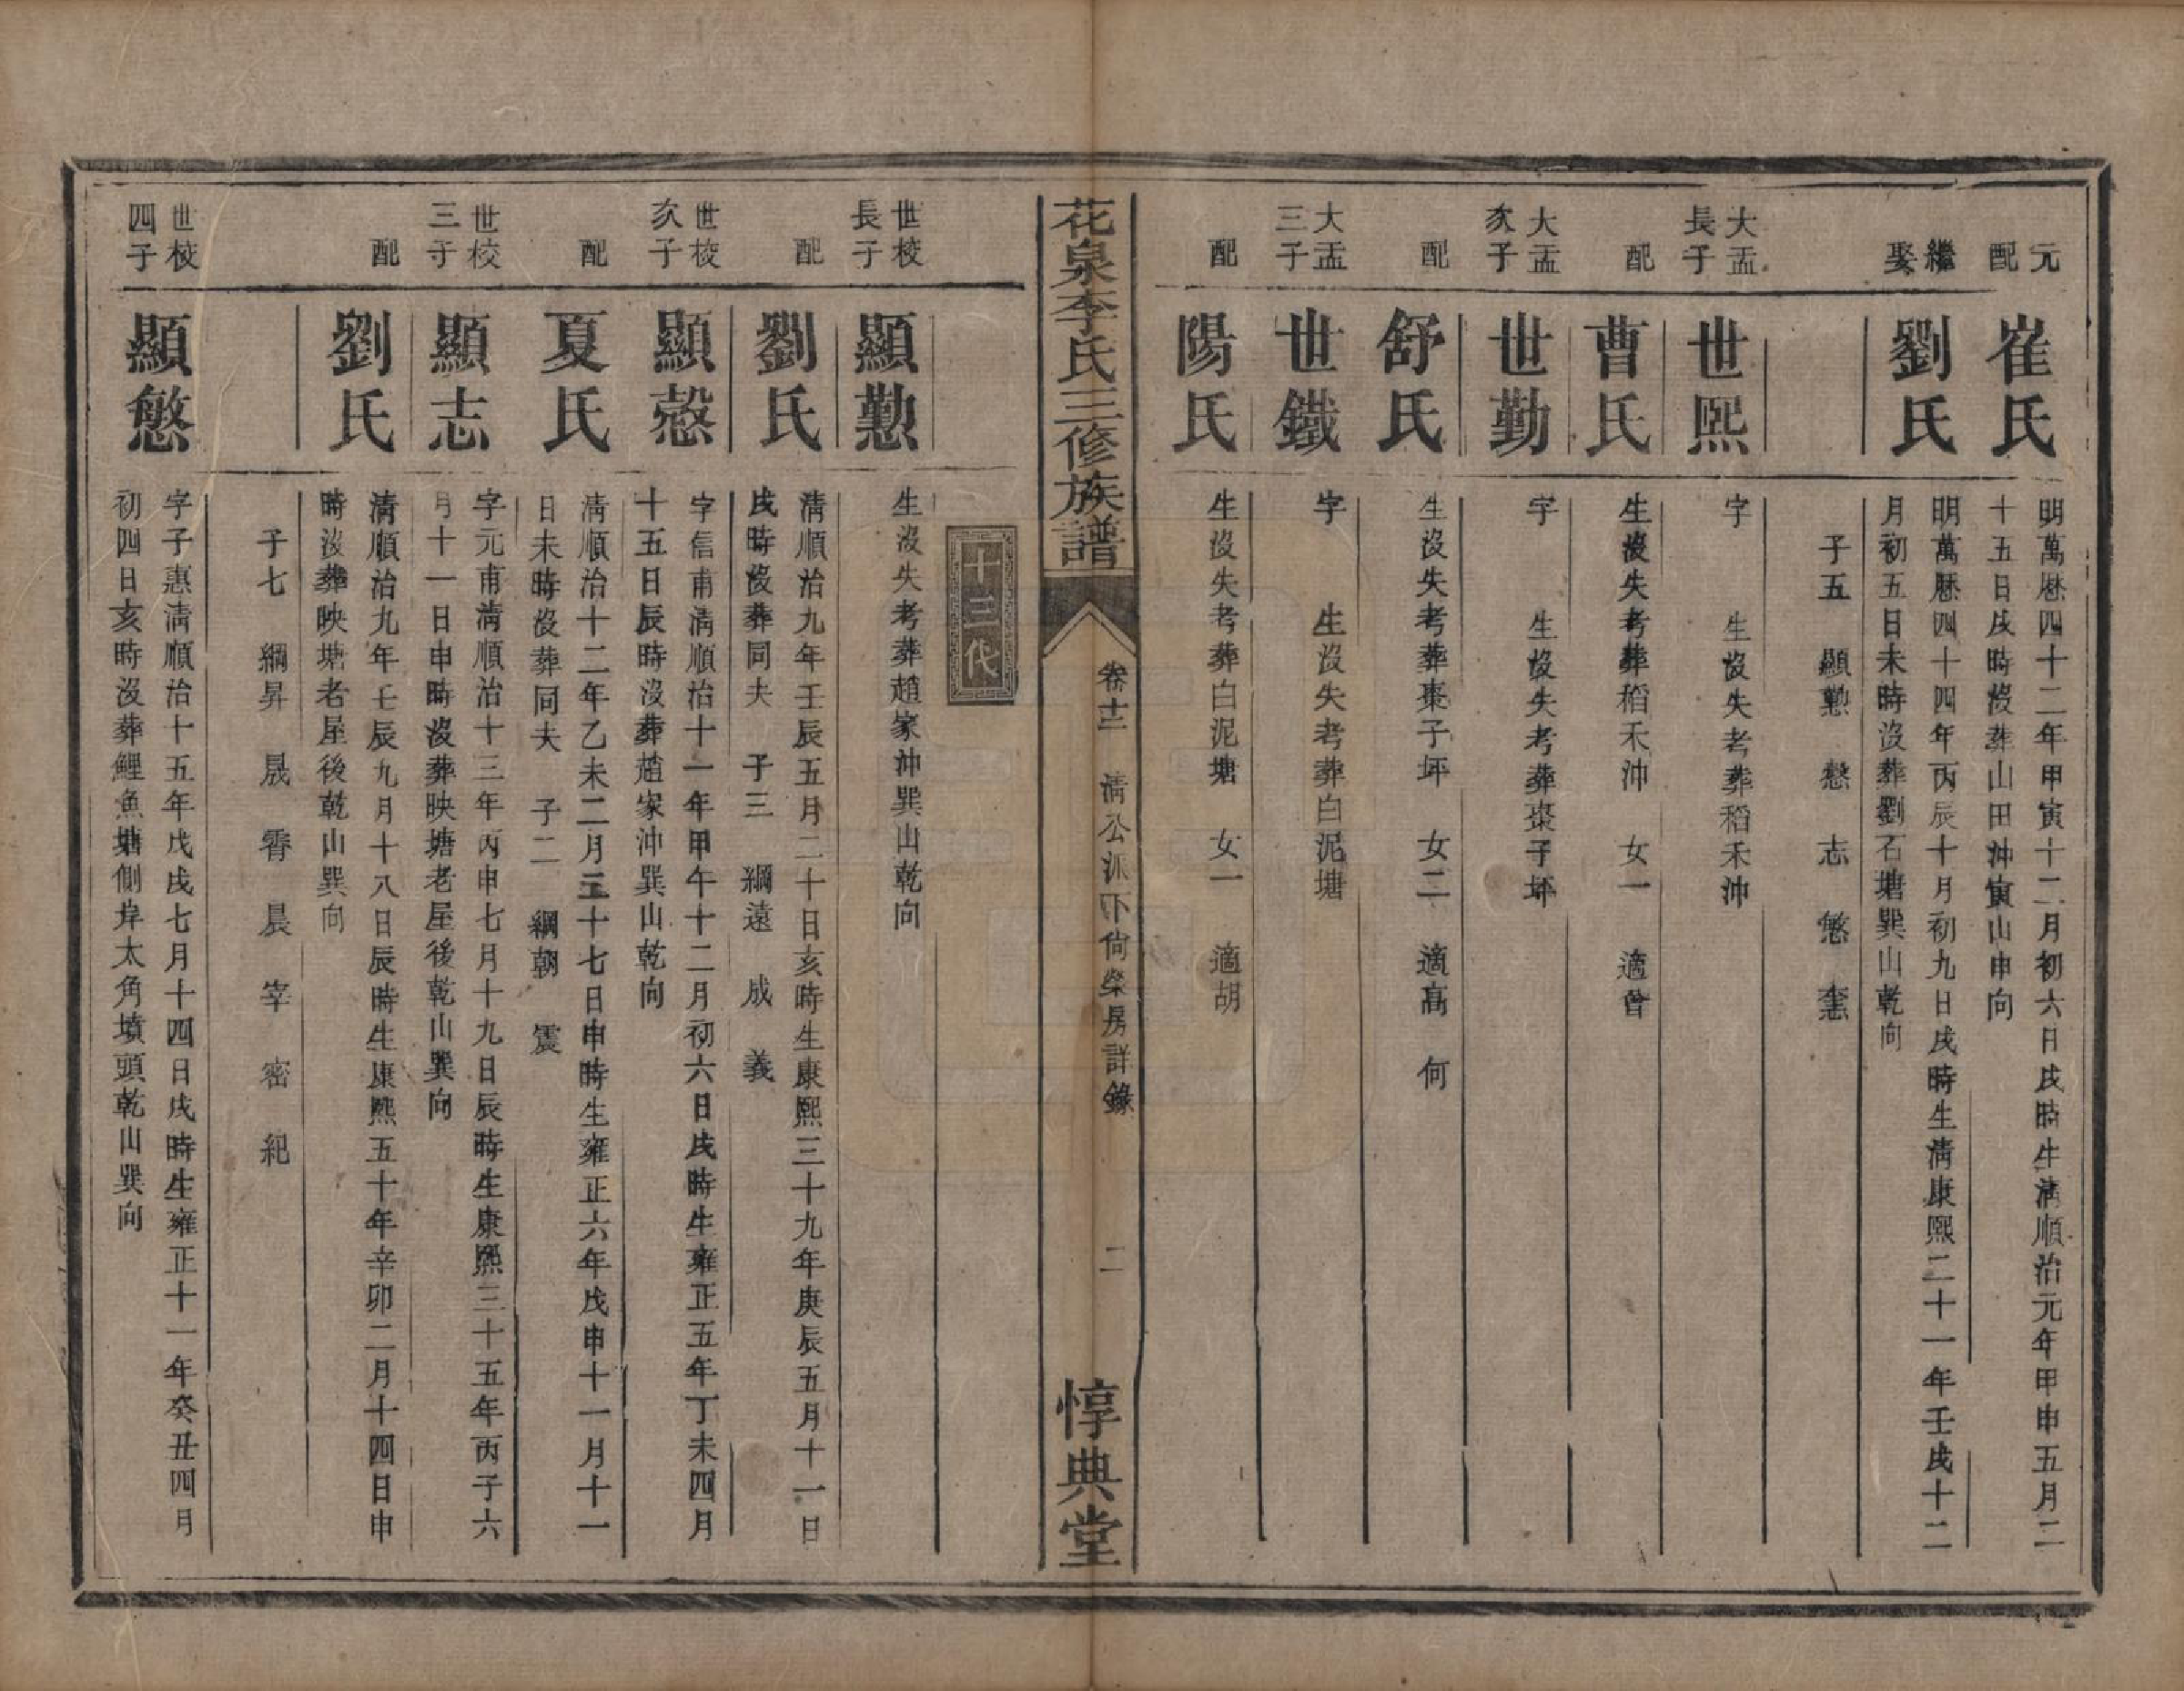 元配
崔氏
明萬厯四十二年甲寅十二月初六日戌時生淸順治元年甲申五月二
十五日戌時沒葬山田沖寅山申向
繼娶
劉氏
明萬厯四十四年丙辰十月初九日戌時生淸康熙二十一年壬戌十二
月初五日未時沒葬劉石塘巽山乾向
子五 顯懃 慤 志 慜
大孟長子
世熙
字 生沒失考葬稻禾沖
配
曹氏
生沒失考葬稻禾沖 女一 適曾
大孟次子
世勤
字 生沒失考葬棗子坪
配
舒氏
生沒失考葬棗子坪 女二 適高 何
大孟三子
世鐵
字 生沒失考葬白泥塘
配
陽氏
生沒失考葬白泥塘 女一 適胡
花泉李氏三修族譜
卷十二 淸公派下尙榮房詳錄
二
惇典堂
十三代
世校長子
顯懃
生沒失考葬趙家沖巽山乾向
配
劉氏
淸順治九年壬辰五月二十日亥時生康熙三十九年庚辰五月十一日
戌時沒葬同夫 子三 綱遠 成 義
世校次子
顯慤
字信甫淸順治十一年甲午十二月初六日戌時生雍正五年丁未四月
十五日辰時沒葬趙家沖巽山乾向
配
夏氏
淸順治十二年乙未二月二十七日申時生雍正六年戊申十一月十一
日未時沒葬同夫 子二 綱朝 震
世校三子
顯志
字元甫淸順治十三年丙申七月十九日辰時生康熙三十五年丙子六
月十一日申時沒葬映塘老屋後乾山巽向
配
劉氏
淸順治九年壬辰九月十八日辰時生康熙五十年辛卯二月十四日申
時沒葬映塘老屋後乾山巽向
子七 綱昇 晟 霄 晨 宰 密 紀
世校四子
顯慜
字子惠淸順治十五年戊戌七月十四日戌時生雍正十一年癸丑四月
初四日亥時沒葬鯉魚塘側岸太角墳頭乾山巽向